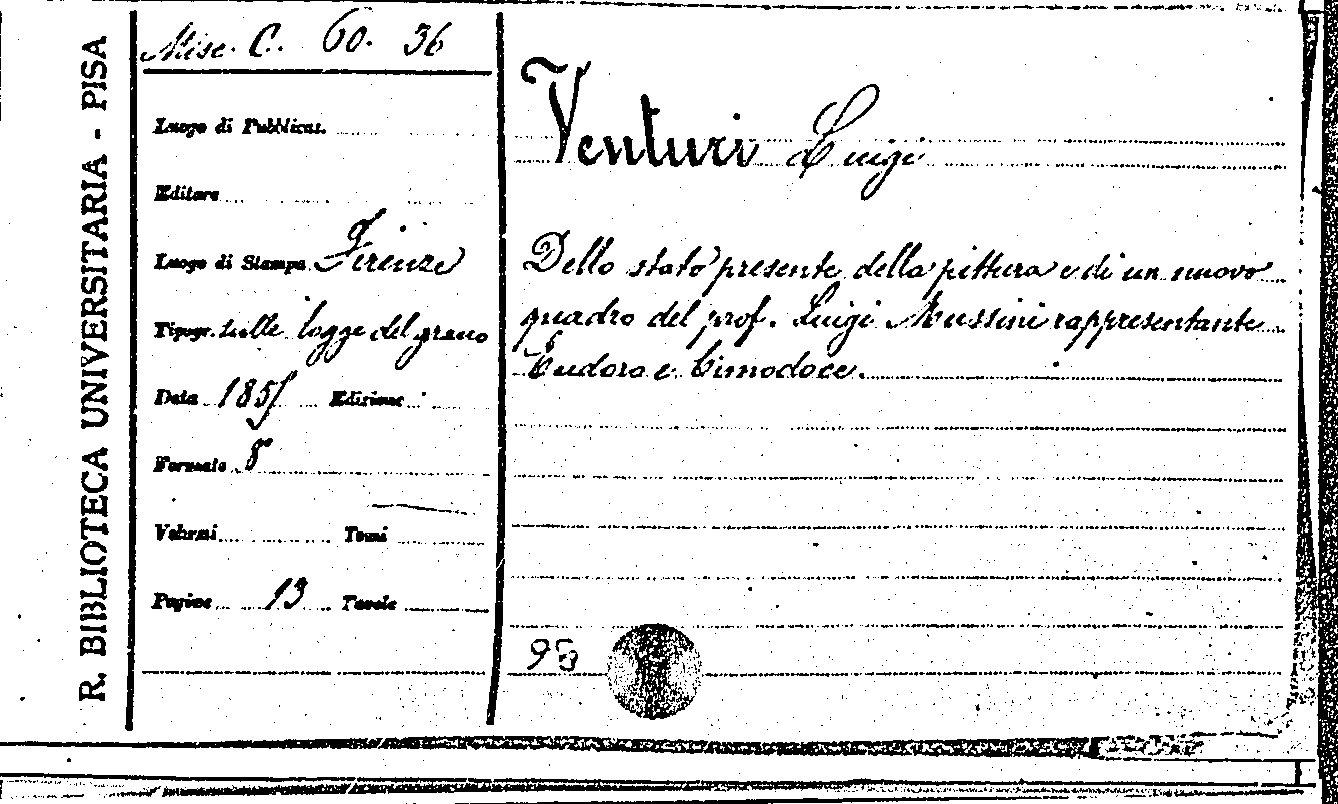 R. BIBLIOTECA UNIVERSITARIA - PISA
Misc. C. 60. 36
Luogo di Pubblicaz.
Editore
Luogo di Stampa Firenze
Tipogr. sulle logge del grano
Data 1855 Edizione
Formato 8°
Volumi Tomi
Pagine 13 Tavole
Venturi Luigi
Dello stato presente della pittura e di un nuovo
quadro del prof. Luigi Mussini rappresentante
Eudoro e Cimodoce.